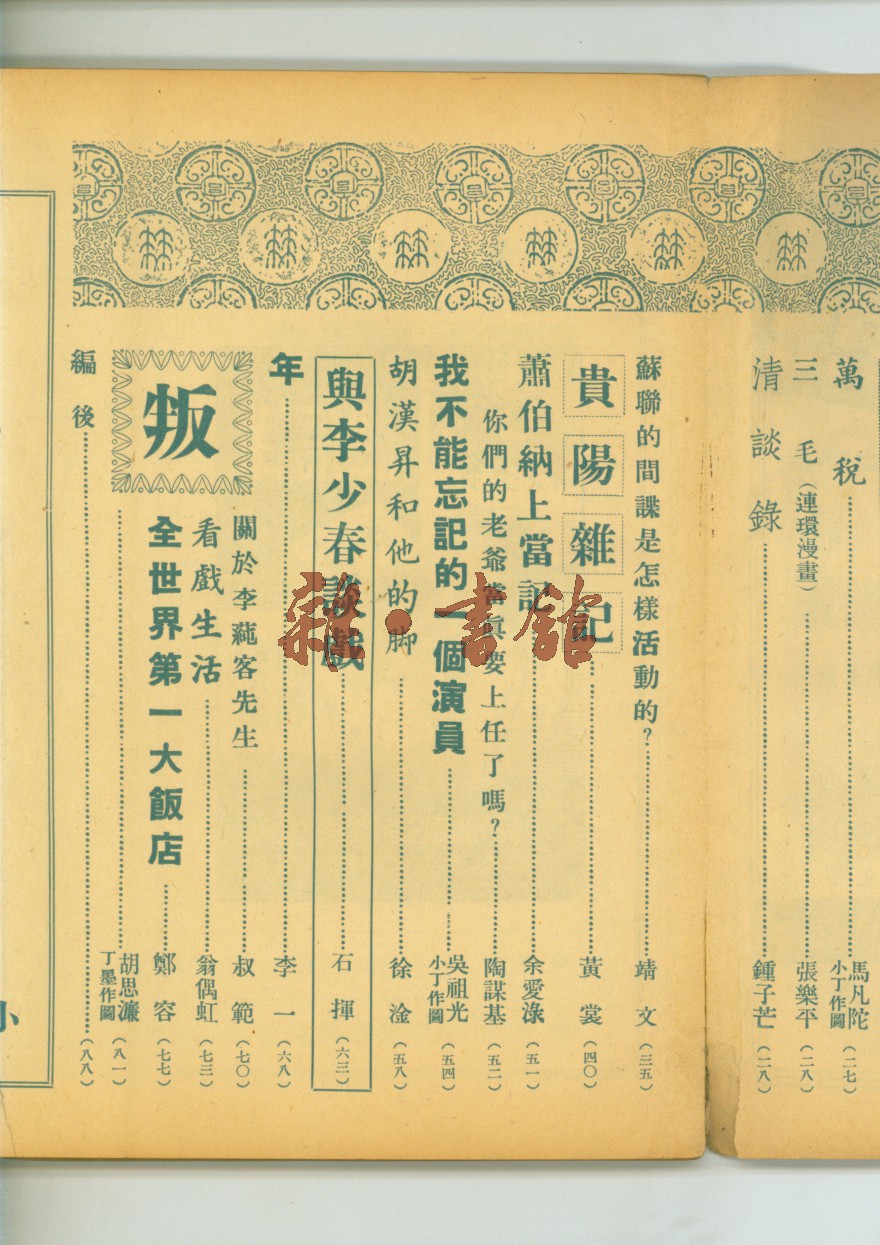 萬稅……馬凡陀 小丁作圖（二七）
三毛（連環漫畫）……張樂平（二八）
清談錄……鍾子芒（二八）
蘇聯的間諜是怎樣活動的？……靖文（三五）
貴陽雜記……黃裳（四〇）
蕭伯納上當記……余愛淥（五一）
你們的老爺當眞要上任了嗎？……陶謀基（五二）
我不能忘記的一個演員……吳祖光 小丁作圖（五四）
胡漢昇和他的脚……徐淦（五八）
與李少春談戲……石揮（六三）
年……李一（六八）
關於李蒓客先生……叔範（七〇）
看戲生活……翁偶虹（七三）
全世界第一大飯店……鄭容（七七）
叛……胡思濂 丁墨作圖（八一）
編後……（八八）
小
雜·書館